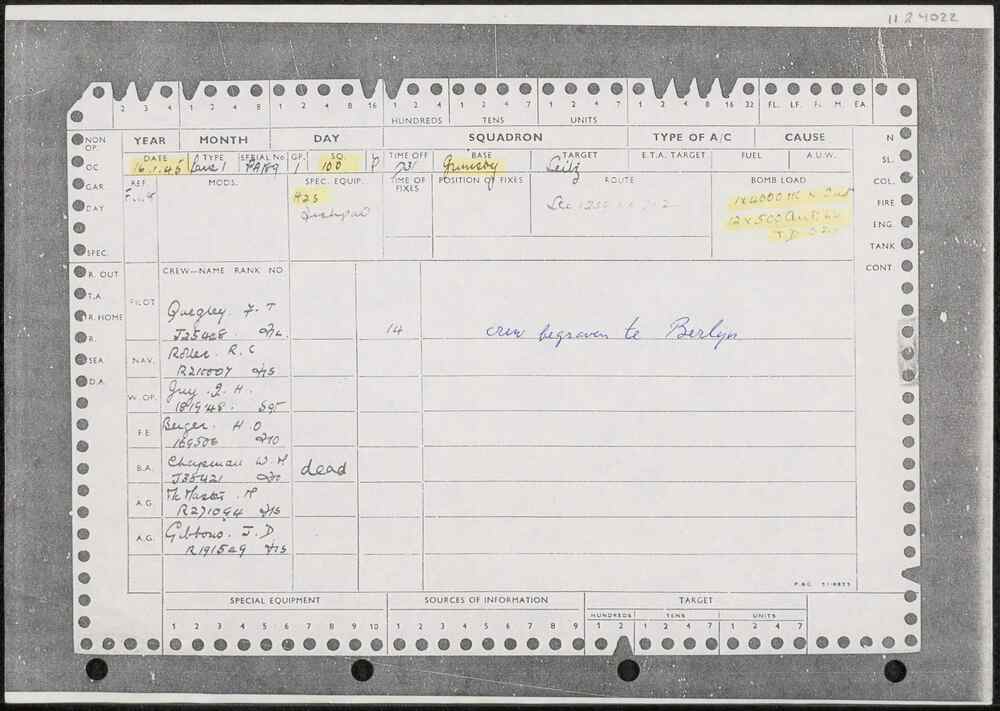 11 2 4022
2 3 4 1 2 4 8 1 2 4 8 16 1 2 4 7 1 2 4 7 1 2 4 7 1 2 4 8 16 32 FL. LF. F. M. EA.
HUNDREDS TENS UNITS
NON OP. YEAR MONTH DAY SQUADRON TYPE OF A/C CAUSE N
DATE TYPE SERIAL No. GP. SQ. TIME OFF BASE TARGET E.T.A. TARGET FUEL A.U.W. SL.
OC 16.1.45 Lanc 1 PA189 1 100 P Grimsby Zeitz
REF. MODS. SPEC. EQUIP. TIME OF FIXES POSITION OF FIXES ROUTE BOMB LOAD COL.
GAR. H2S 1x4000 HC
DAY Fishpond 12x500 FIRE
ENG.
SPEC. TANK
R. OUT CREW—NAME RANK NO CONT.
T.A.
R. HOME PILOT Quigley. F. T
R. J25428. 14 crew begraven te Berlyn
SEA NAV. Roller. R. C
D.A. R210007
W. OP. Guy. J. H.
Sgt
F.E. Berger. H. O
169506
B.A. Chapman W. M dead
J38421
A.G. McMaster. M
R271094
A.G. Gibbons. J. D
R191529
SPECIAL EQUIPMENT SOURCES OF INFORMATION TARGET
HUNDREDS TENS UNITS
1 2 3 4 5 6 7 8 9 10 1 2 3 4 5 6 7 8 9 1 2 1 2 4 7 1 2 4 7